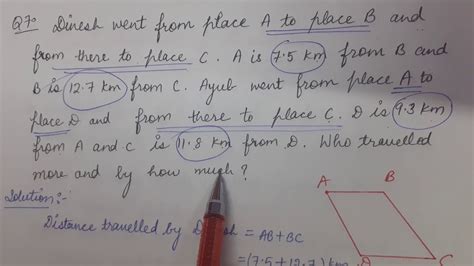 Q7:- Dinesh went from place A to place B and
from there to place C. A is 7.5 km from B and
B is 12.7 km from C. Ayub went from place A to
place D and from there to place C. D is 9.3 km
from A and C is 11.8 km from D. Who travelled
more and by how much?
A B
Solution:-
Distance travelled by = AB+BC
D C
= (7.5+12.7) km